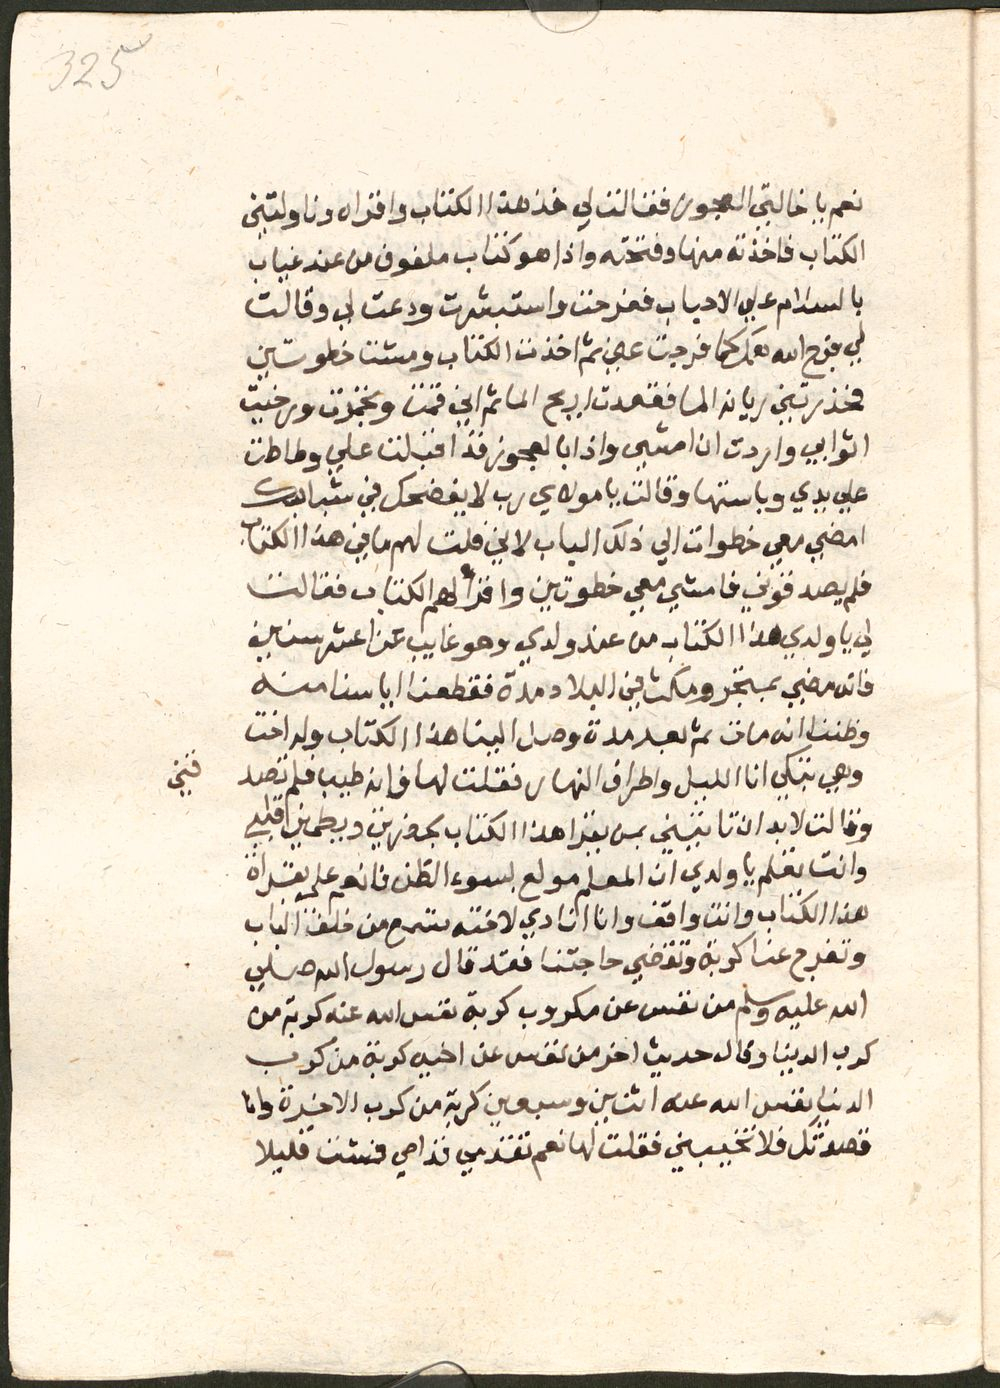 325
نعم يا خالتي العجوز فقالت لي خذ هذا الكتاب واقراه وناولتني
الكتاب فاخذته منها وفتحته واذا هو كتاب ملفوف من عند غياب
بالسلام علي الاحباب ففرحت واستبشرت ودعت لي وقالت
لي فرج الله همك كما فرجت عني ثم اخذت الكتاب ومشت خطوتين
فحذرتني رياته الما فقعدت اريح الما ثم اني قمت وتخمرت ورخيت
اثوابي واردت ان امشي واذا بالعجوز قد اقبلت علي وطاطت
علي يدي وباستها وقالت يا مولاي رب لا يفضحك في شبابك
امضي معي خطوات الي ذلك الباب لاني قلت لهم ما في هذا الكتاب
فلم يصدقوني فامشي معي خطوتين واقرأ لهم الكتاب فقالت
لي يا ولدي هذا الكتاب من عند ولدي وهو غايب عنا عشر سنين
فانه مضي بمتجر ومكث في البلاد مدة فقطعنا اياسنا منه
وظننا انه مات ثم بعد مدة وصل الينا هذا الكتاب وله اخت
وهي تبكي انا الليل واطراف النهار فقلت لها فانه طيب فلم تصد
قني
وقالت لا بد ان تاتيني بمن يقرا هذا الكتاب بحضرتي ويطمين قلبي
وانت تعلم يا ولدي ان المعلم مولع بسوء الظن فانعم علي بقراة
هذا الكتاب وانت واقف وانا انادي لاخته تسمع من خلف الباب
وتفرج عنا كربة وتقضي حاجتنا فقد قال رسول الله صلي
الله عليه وسلم من نفس عن مكروب كربة نفس الله عنه كربة من
كرب الدنيا وقال حديث اخر من نفس عن اخيه كربة من كرب
الدنيا نفس الله عنه اثنين وسبعين كربة من كرب الاخرة وانا
قصدتك فلا تخيبني فقلت لها نعم تقدمي قدامي فمشت قليلا